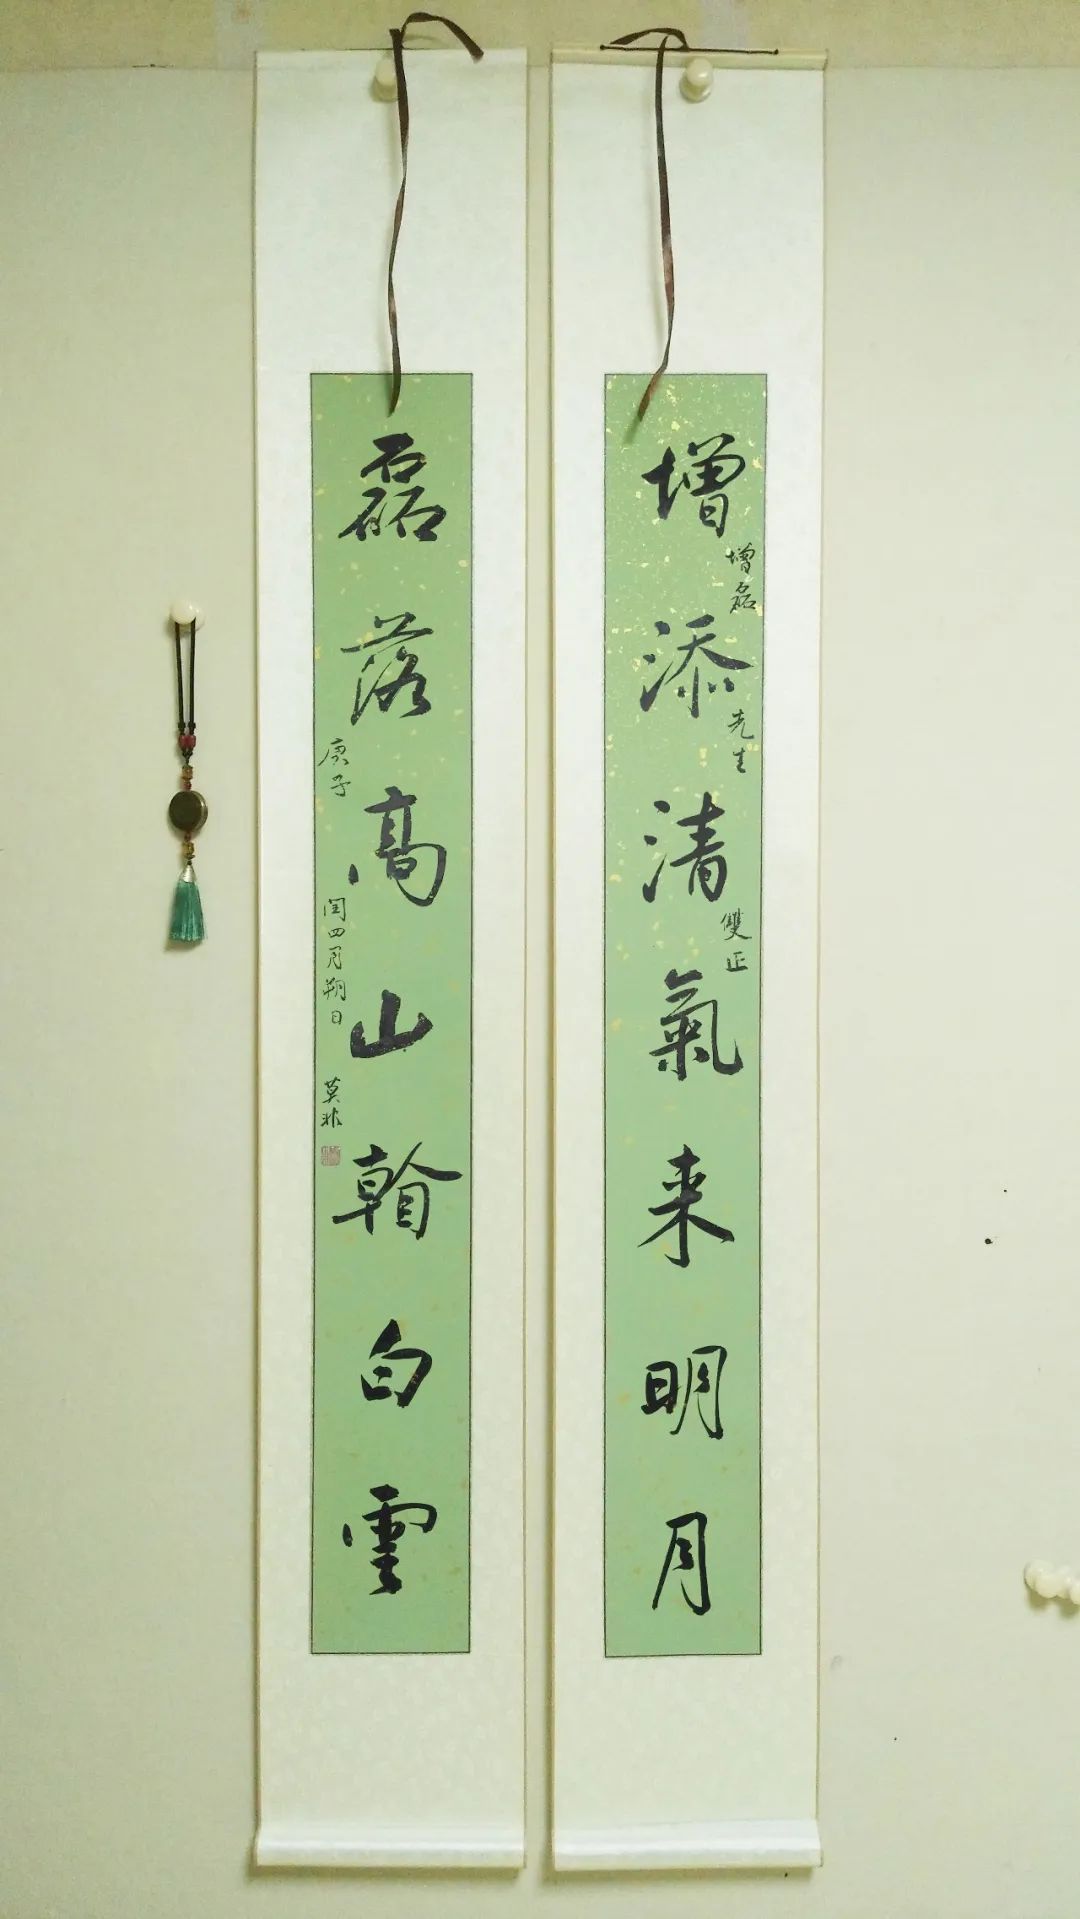 增添清氣来明月
增磊先生雙正
磊落高山翰白雲
庚子閏四月朔日莫非